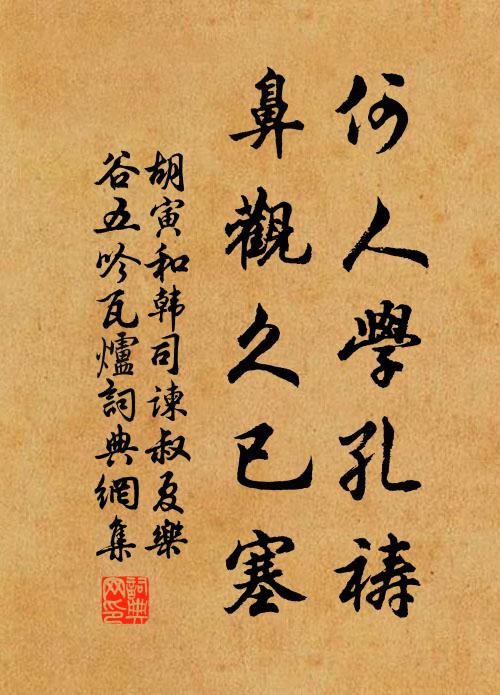 何人學孔禱
鼻觀久已塞
胡寅和韩司谏叔夏樂
谷五吟瓦爐詞典網集
詞典網印